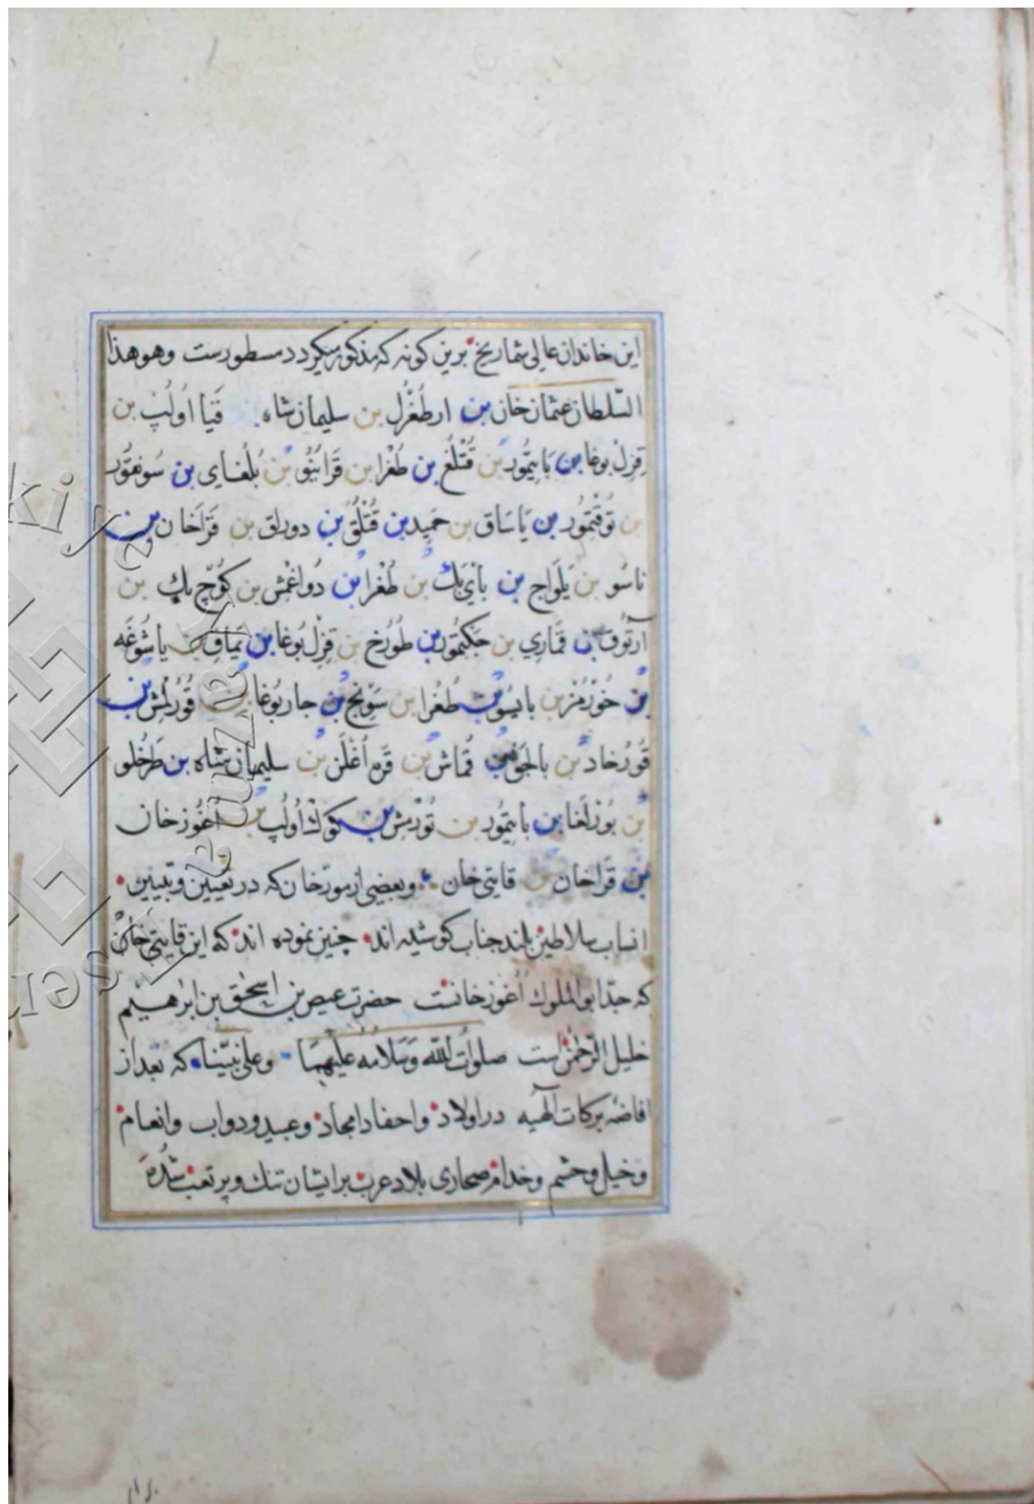 این خاندان عالی شماریخ برین کونه که مذکور میکردد مسطورست وهو هذا
السّلطان عثمان خان بن ارطُغْرل بن سلیمان شاه قَیا اُولُپ بن
قِزِل بوغا بن بَایِتمُور بن قُتْلُغْ بن طُغْرا بن قَرَا بُلْغای بن سُونقُور
بن تُوقْتمُور بن یَاسَاق بن حَمِید بن قُتْلُقْ بن دورلق بن قَرَاخان بن
ناسُو بن یَلَواج بن بَایْ بَك بن طُغْرا بن دُواغمِش بن کُوچ بك بن
آرتُوق بن قَمَارِی بن جَکتمُور بن طُورَخ بن قِزِل بُوغا بن یَماق بن یاشُوغَه
بن خُوْرمُز بن بایسُوب بن طُغْرا بن سَوِنج بن جار بُوغا بن قُورتلمِش بن
قُورخاد بن بالجق بن قُماش بن قَره اُغْلَن بن سلیمان شاه بن طَرخُلو
بن بُوزلُغا بن بایتِمُور بن تُورمِش بن کوك اُولُپ بن اُغُوزخان
بن قَراخان بن قایتی خان وبعضی از مورّخان که در تعیین وتبیین
انساب سلاطین بلند جناب کوشیده اند چنین نموده اند که این قایتی خان
که جدّ ابو الملوك اُغوزخانست حضرت عیص بن اسحق بن ابرهیم
خلیل الرّحمن است صلوات الله وسلامه علیهما وعلی نبیّنا که بعد از
افاضهٔ برکات آلهیه در اولاد واحفاد امجاد وعبید ودواب وانعام
وخیل وحشم وخدام صحاری بلاد عرب برایشان تنك وپر تعب شده